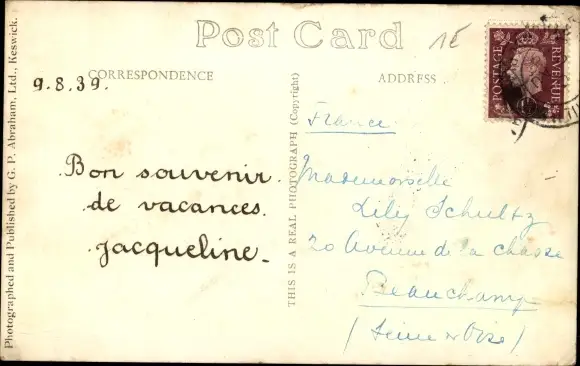 Post Card
1E
POSTAGE
REVENUE
CORRESPONDENCE
ADDRESS
9.8.39.
Bon souvenir
de vacances.
Jacqueline_
France
Mademoiselle
Lily Schultz
20 Avenue de la chasse
Beauchamp
(Seine et Oise)
THIS IS A REAL PHOTOGRAPH (Copyright)
Photographed and Published by G. P. Abraham, Ltd., Keswick.